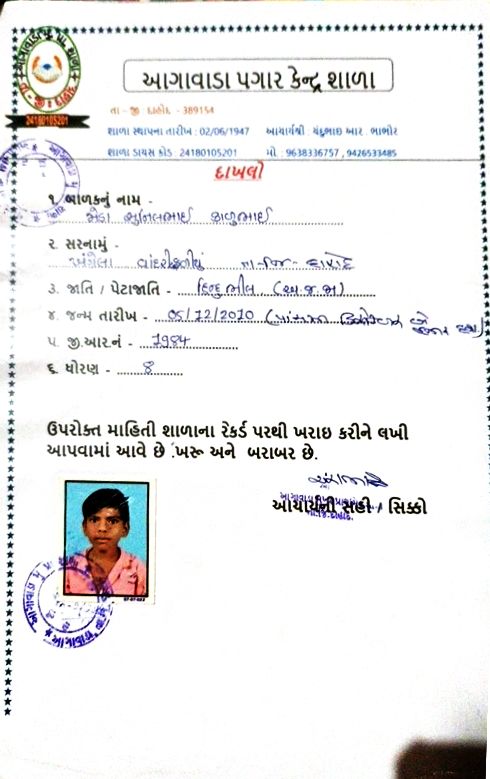 આગાવાડા પગાર કેન્દ્ર શાળા
તા - જી : દાહોદ - 389154
24180105201
શાળા સ્થાપના તારીખ : 02/06/1947 આચાર્યશ્રી ચંદુભાઇ આર. ભાભોર
શાળા ડાયસ કોડ 24180105201 મો : 9638336757 , 9426533485
દાખલો
૧. બાળકનું નામ -
મેડા સુનિલભાઈ કાળુભાઈ
૨. સરનામું -
તા-જી- દાહોદ
૩. જાતિ / પેટાજાતિ - હિન્દુ ભીલ (અ.જ.જા)
૪. જન્મ તારીખ - 05/12/2010
૫. જી.આર.નં - 7984
૬. ધોરણ - 8
ઉપરોક્ત માહિતી શાળાના રેકર્ડ પરથી ખરાઇ કરીને લખી
આપવામાં આવે છે .ખરૂ અને બરાબર છે.
આચાર્યની સહી / સિક્કો